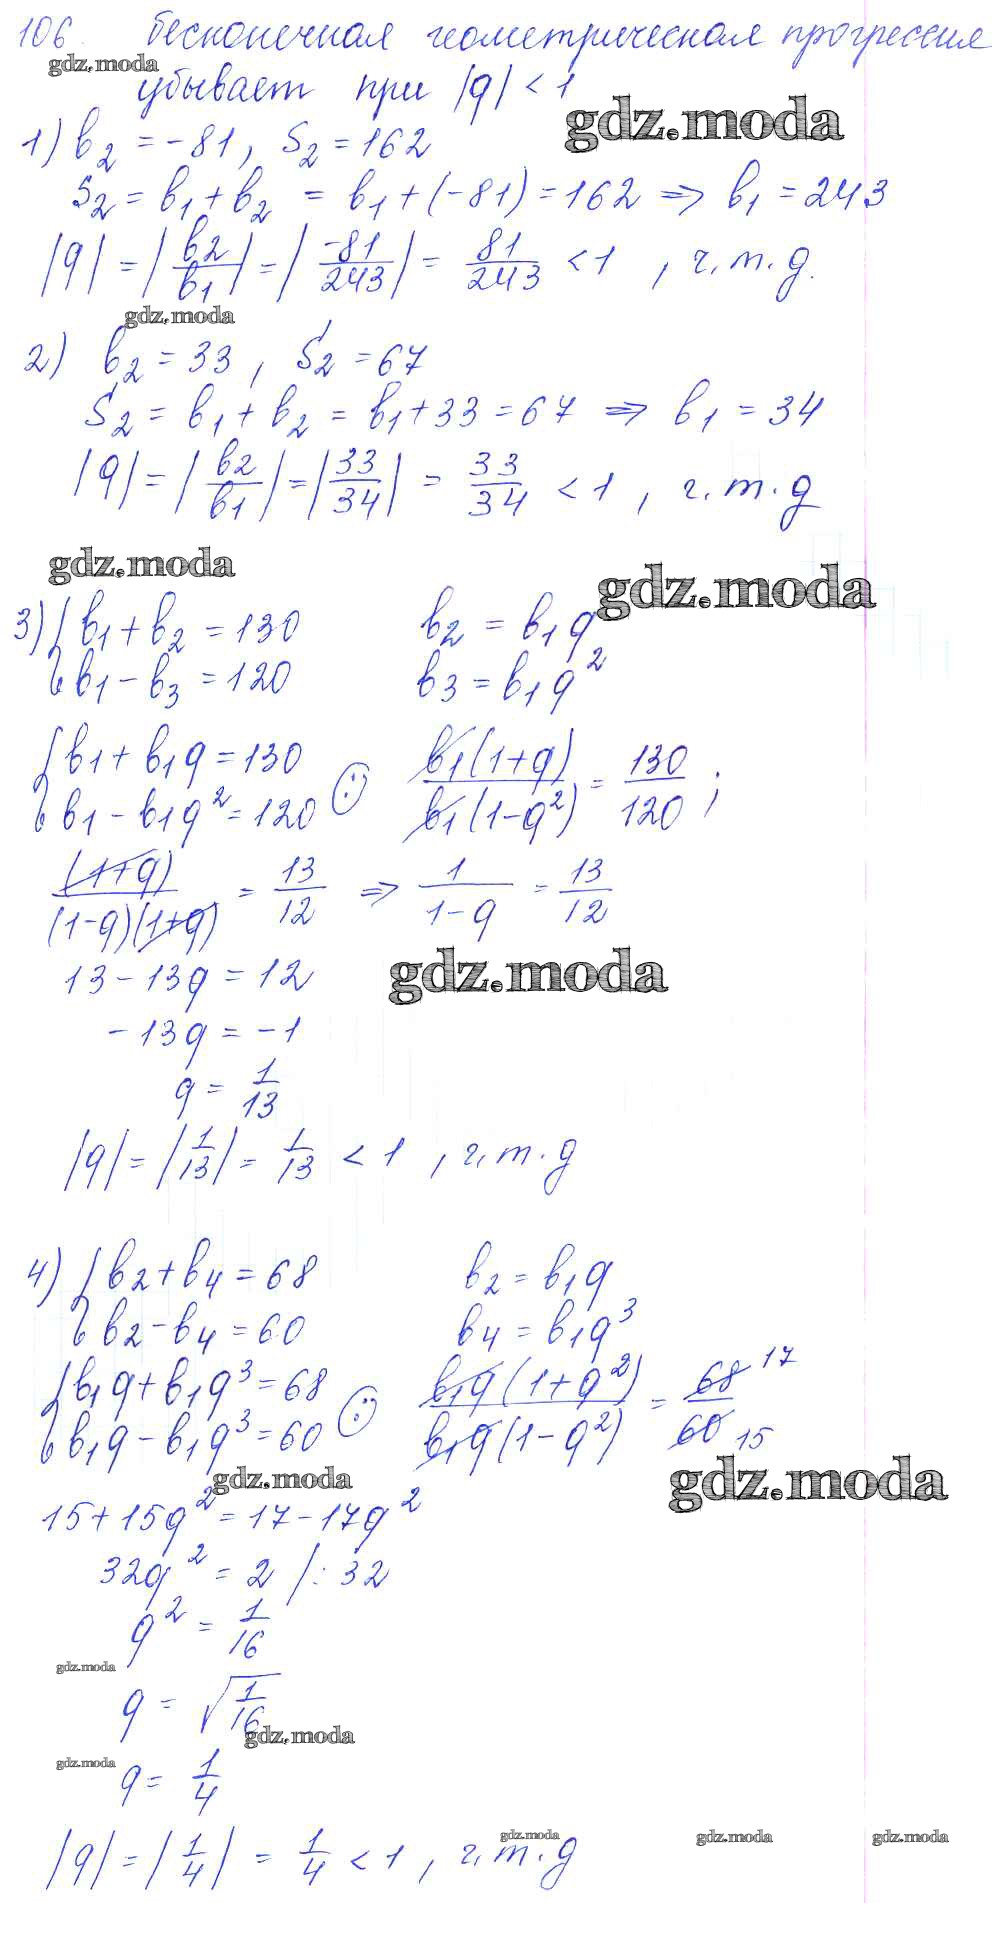 106. бесконечная геометрическая прогрессия
gdz.moda
убывает при |q| < 1
gdz.moda
1) b₂ = -81, S₂ = 162
S₂ = b₁ + b₂ = b₁ + (-81) = 162 => b₁ = 243
|q| = |b₂/b₁| = |-81/243| = 81/243 < 1, ч.т.д.
gdz.moda
2) b₂ = 33, S₂ = 67
S₂ = b₁ + b₂ = b₁ + 33 = 67 => b₁ = 34
|q| = |b₂/b₁| = |33/34| = 33/34 < 1, ч.т.д
gdz.moda gdz.moda
3) { b₁ + b₂ = 130 b₂ = b₁q
b₁ - b₃ = 120 b₃ = b₁q²
{ b₁ + b₁q = 130 b₁(1+q)/b₁(1-q²) = 130/120;
b₁ - b₁q² = 120 (:)
(1+q)/(1-q)(1+q) = 13/12 => 1/1-q = 13/12
13 - 13q = 12
gdz.moda
-13q = -1
q = 1/13
|q| = |1/13| = 1/13 < 1, ч.т.д
4) { b₂ + b₄ = 68 b₂ = b₁q
b₂ - b₄ = 60 b₄ = b₁q³
{ b₁q + b₁q³ = 68 b₁q(1+q²)/b₁q(1-q²) = 68/60 17 15
b₁q - b₁q³ = 60 (:)
gdz.moda gdz.moda
15 + 15q² = 17 - 17q²
32q² = 2 |: 32
q² = 1/16
gdz.moda
q = √1/16
gdz.moda
gdz.moda
q = 1/4
gdz.moda gdz.moda gdz.moda
|q| = |1/4| = 1/4 < 1, ч.т.д